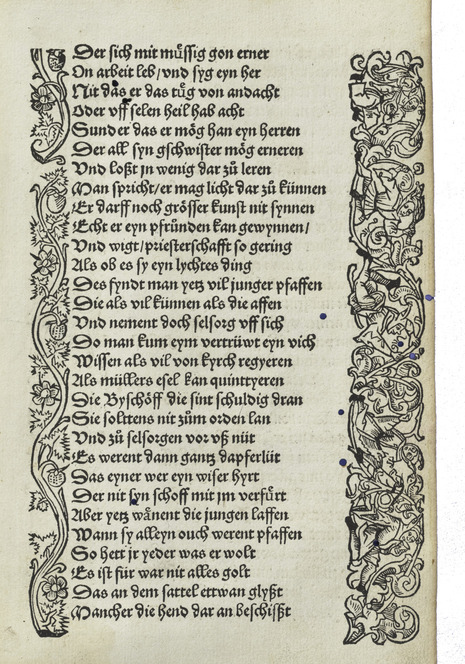 Der sich mit müssig gon erner
On arbeit leb / vnd syg eyn her
Nit das er das tüg von andacht
Oder vff selen heil hab acht
Sunder das er mög han eyn herren
Der all syn gschwister mög erneren
Vnd loßt jn wenig dar zů leren
Man spricht / er mag licht dar zů künnen
Er darff noch grösser kunst nit synnen
Echt er eyn pfründen kan gewynnen /
Vnd wigt / priesterschafft so gering
Als ob es sy eyn lychtes ding
Des fyndt man yetz vil junger pfaffen
Die als vil künnen als die affen
Vnd nement doch selsorg vff sich
So man kum eym vertrüwt eyn vich
Wissen als vil von kyrch regyeren
Als müllers esel kan quinttyeren
Die Byschöff die sint schuldig dran
Sie solttens nit zům orden lan
Vnd zů selsorgen vor vß nüt
Es werent dann gantz dapfer lüt
Das eyner wer eyn wiser hyrt
Der nit syn schoff mit jm verfürt
Aber yetz wånent die jungen laffen
Wann sy alleyn ouch werent pfaffen
So hett jr yeder was er wolt
Es ist für war nit alles golt
Das an dem sattel ettwan glyßt
Mancher die hend dar an beschißt